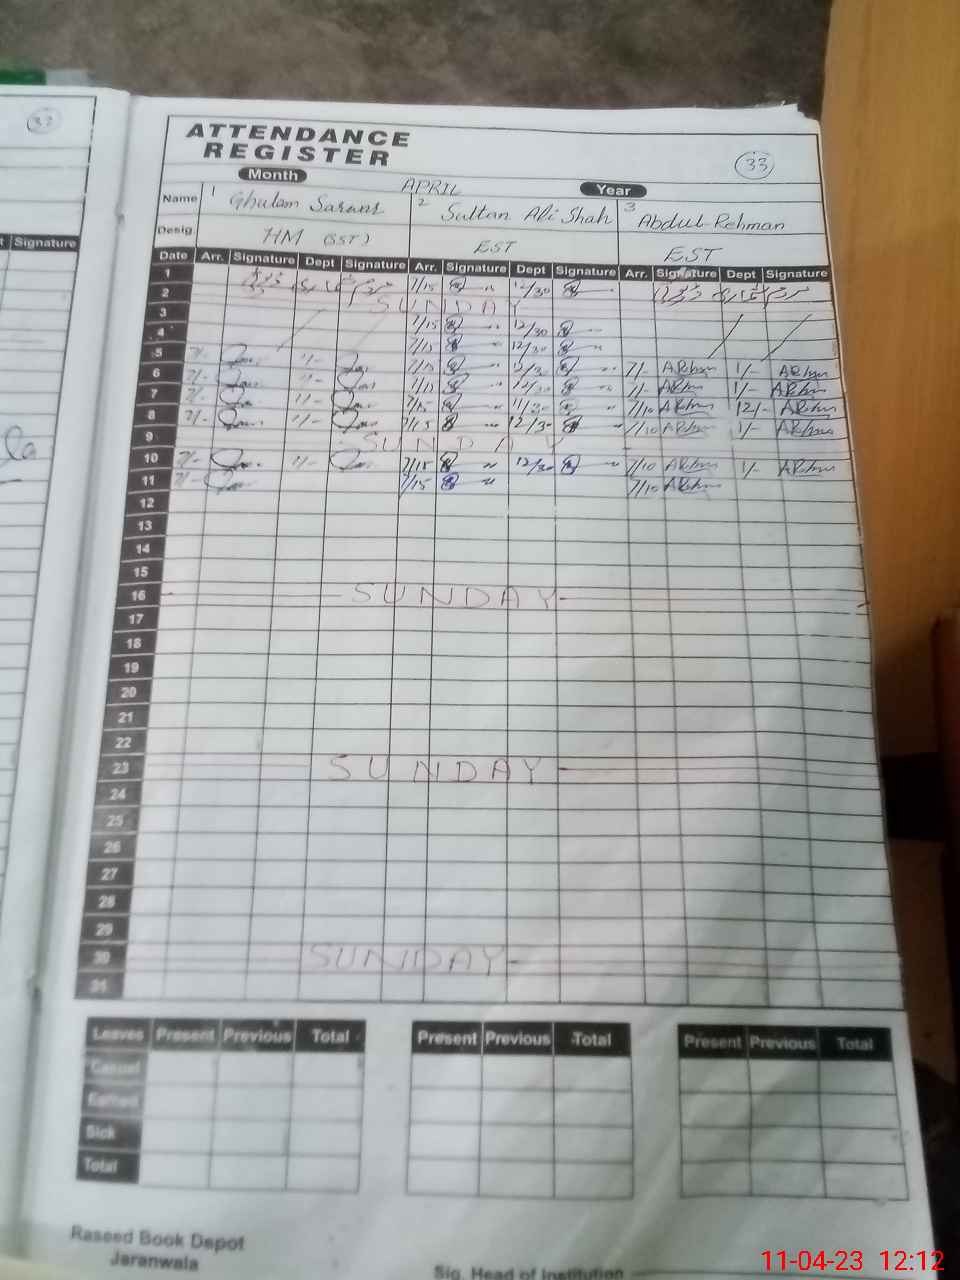 32
ATTENDANCE
REGISTER
33
Month APRIL Year
Name 1 Ghulam Sarwar 2 Sultan Ali Shah 3 Abdul-Rehman
Desig. HM (SST) EST EST
t Signature
Date Arr. Signature Dept Signature Arr. Signature Dept Signature Arr. Signature Dept Signature
1 7/15 12/30
2 SUNDAY
3 7/15 12/30
4 7/15 12/30
5 7/- 1/- 7/15 12/30 7/- ARehman 1/- ARehman
6 7/- 1/- 7/15 12/30 7/- ARehman 1/- ARehman
7 7/- 1/- 7/15 11/30 7/10 ARehman 12/- ARehman
8 7/- 1/- 7/15 12/30 7/10 ARehman 1/- ARehman
9 SUNDAY
10 7/- 1/- 7/15 12/30 7/10 ARehman 1/- ARehman
11 7/- 7/15 7/10 ARehman
12
13
14
15
16 SUNDAY
17
18
19
20
21
22
23 SUNDAY
24
25
26
27
28
29
30 SUNDAY
31
Leaves Present Previous Total Present Previous Total Present Previous Total
Casual
Earned
Sick
Total
Raseed Book Depot
Jaranwala
Sig. Head of Institution
11-04-23 12:12